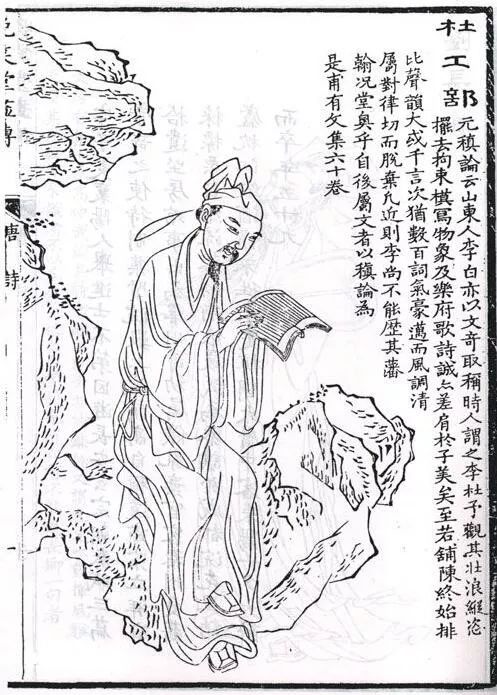 杜工部
元稹論云山東人李白亦以文奇取稱時人謂之李杜予觀其壯浪縱恣
擺去拘束模寫物象及樂府歌詩誠亦差肩於子美矣至若鋪陳終始排
比聲韻大成千言次猶數百詞氣豪邁而風調清
屬對律切而脫棄凡近則李尚不能歷其藩
翰況堂奧乎自後屬文者以稹論為
是甫有文集六十卷
笑堂畫傳